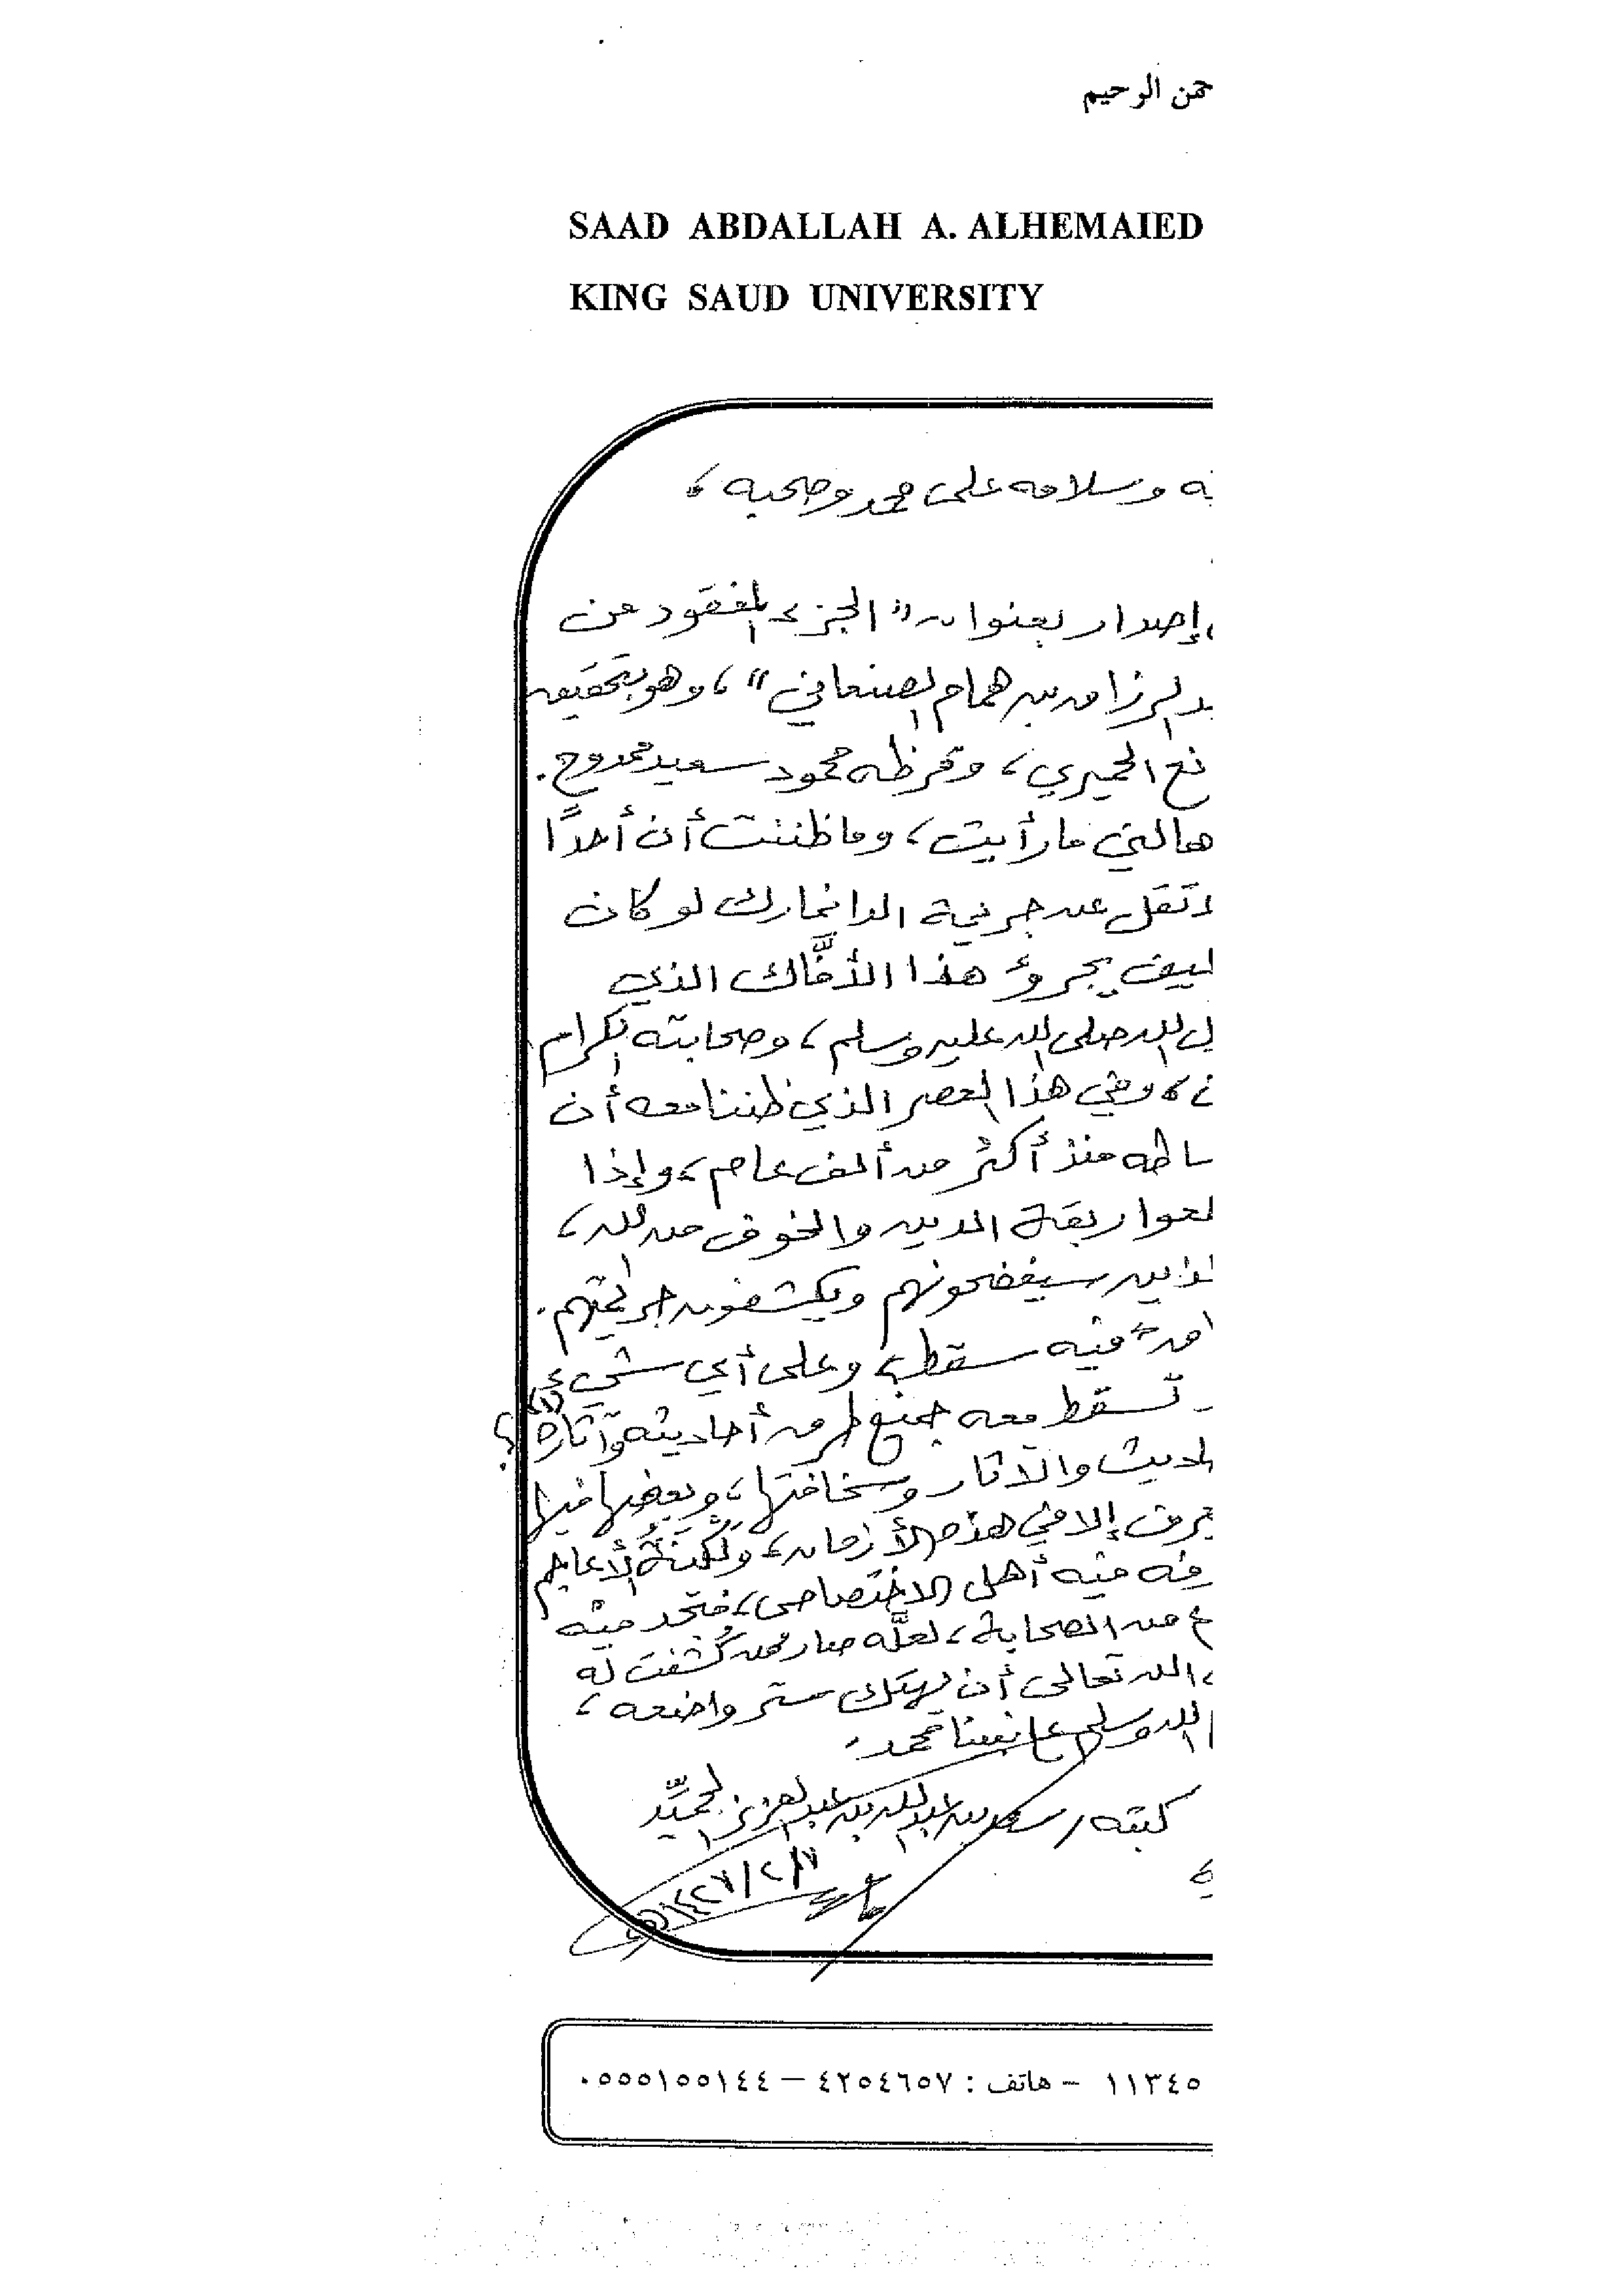 حمن الرحيم
SAAD ABDALLAH A. ALHEMAIED
KING SAUD UNIVERSITY
ـه وسلامه على محمد وصحبه ،
إصدار بعنوان " الجزء المفقود من
ـد الرزاق بن همام الصنعاني " ، وهو بتحقيق
نع الحميري ، وقرظه محمود سعيد ممدوح .
هالني ما رأيت ، وما ظننت أن أحدًا
تقل عن جريمة الدانمارك لو كان
ـيف يجرؤ هذا الأفَّاك الذي
ل الله صلى الله عليه وسلم ، وصحابته الكرام
ن ، وفي هذا العصر الذي ظننا معه أن
ساطه منذ أكثر من ألف عام ، وإذا
لعوا ربقة الدين والخوف من الله ،
لذين سيفضحونهم ويكشفون جريمتهم .
فيه سقط ، وعلى أي شيء
تسقط معه جميع طرق أحاديثه وآثاره (١) ؟
ـاديث والآثار وسخافتها ، وبعضها فيها
ـرف إلا في هذه الأزمان ، ولُكْنَةُ الأعاجم
ـفه فيه أهل الاختصاص ، فتجد فيه
ع من الصحابة ، لعلَّه صار ممن كُشفت له
، الله تعالى أن يهتك ستر واضعه ،
الله وسلم على نبينا محمد .
كتبه / سعد بن عبد الله بن عبد العزيز الحميِّد
١٤٢٧/٢/٧ هـ
١١٣٤٥ - هاتف : ٤٢٥٤٦٥٧ – ٠٥٥٥١٥٥١٤٤